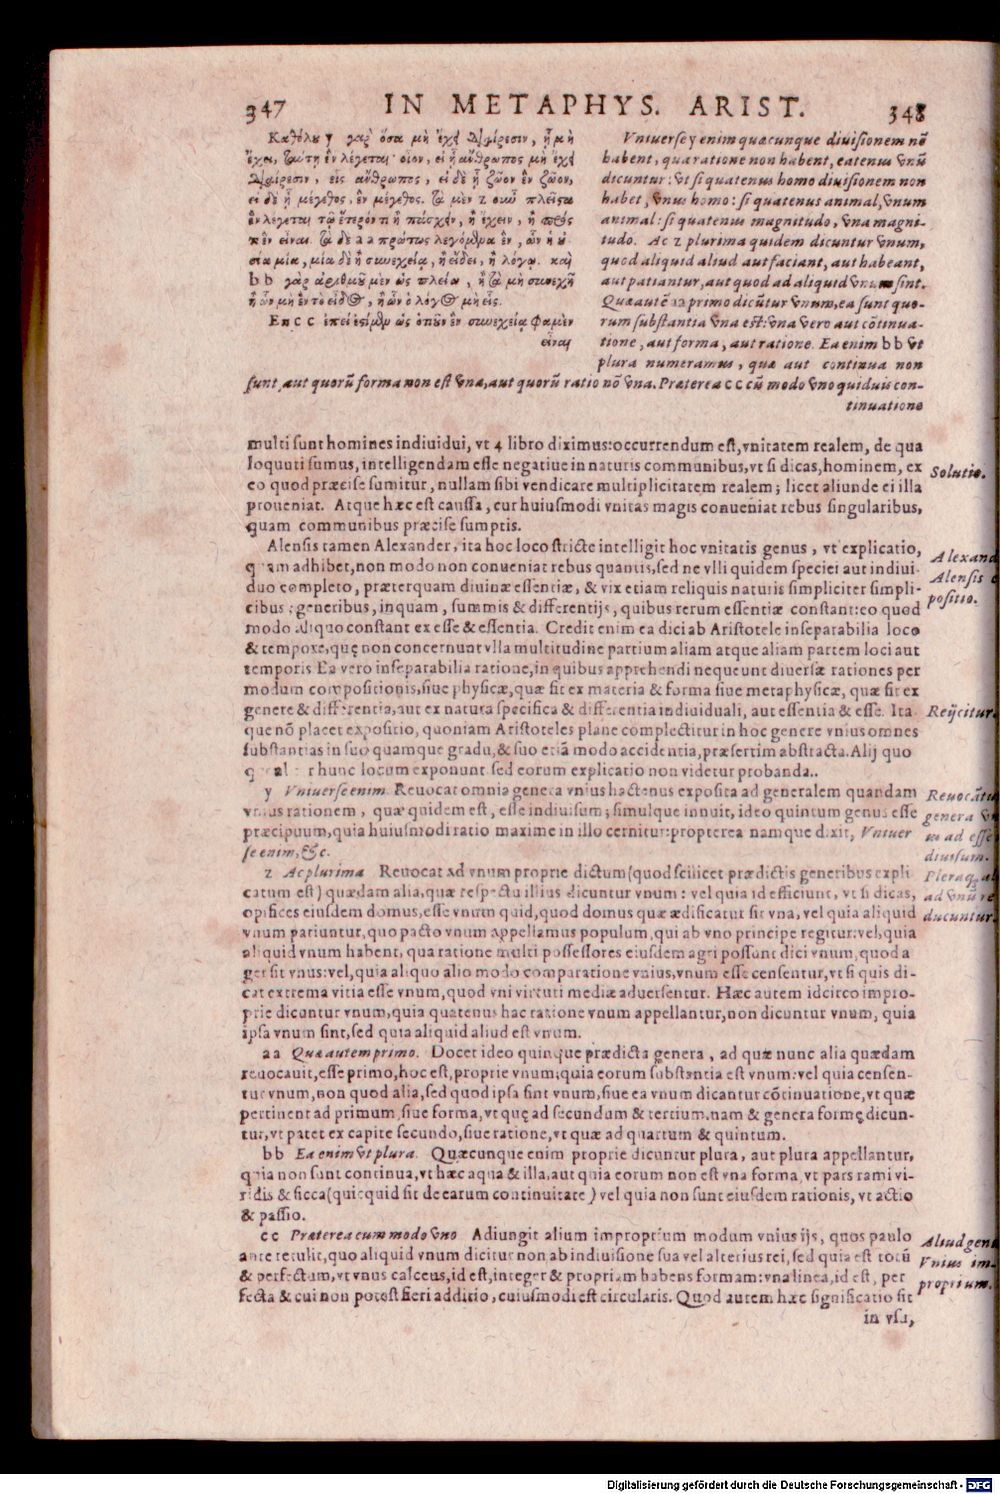 347 IN METAPHYS. ARIST. 348
Καθόλου y γὰρ ὅσα μὴ ἔχῃ διαίρεσιν, ᾗ μὴ
ἔχει, ταύτῃ ἓν λέγεται· οἷον, εἰ ᾗ ἄνθρωπος μὴ ἔχῃ
διαίρεσιν, εἷς ἄνθρωπος, εἰ δὲ ᾗ ζῶον ἓν ζῶον,
εἰ δὲ ᾗ μέγεθος, ἓν μέγεθος. τὰ μὲν z οὖν πλεῖστα
ἓν λέγεται τῷ ἕτερόν τι ἢ πάσχειν, ἢ ἔχειν, ἢ πρός
τι ἓν εἶναι. τὰ δὲ aa πρώτως λεγόμενα ἓν, ὧν ἡ οὐ-
σία μία, μία δὲ ἢ συνεχείᾳ, ἢ εἴδει, ἢ λόγῳ. καὶ
bb γὰρ ἀριθμοῦμεν ὡς πλείω, ἢ τὰ μὴ συνεχῆ
ἢ ὧν μὴ ἓν τὸ εἶδος, ἢ ὧν ὁ λόγος μὴ εἷς.
Ἔτι cc ἐπεὶ ἐσὶμεν ὡς ὁτιοῦν ἓν συνεχείᾳ φαμὲν
εἶναι
Vniuerse y enim quacunque diuisionem nō
habent, qua ratione non habent, eatenus vnū
dicuntur: vt si quatenus homo diuisionem non
habet, vnus homo: si quatenus animal, vnum
animal: si quatenus magnitudo, vna magni-
tudo. Ac z plurima quidem dicuntur vnum,
quod aliquid aliud aut faciant, aut habeant,
aut patiantur, aut quod ad aliquid vnum sint.
Quæ autē aa primo dicūtur vnum, ea sunt quo-
rum substantia vna est: vna vero aut cōtinua-
tione, aut forma, aut ratione. Ea enim bb vt
plura numeramus, quæ aut continua non
sunt, aut quorū forma non est vna, aut quorū ratio nō vna. Præterea cc cū modo vno quiduis con-
tinuatione
multi sunt homines indiuidui, vt 4 libro diximus: occurrendum est, vnitatem realem, de qua
loquuti sumus, intelligendam esse negatiue in naturis communibus, vt si dicas, hominem, ex
eo quod præcise sumitur, nullam sibi vendicare multiplicitatem realem; licet aliunde ei illa
proueniat. Atque hæc est caussa, cur huiusmodi vnitas magis conueniat rebus singularibus,
quam communibus præcise sumptis.
Solutio.
Alensis tamen Alexander, ita hoc loco stricte intelligit hoc vnitatis genus, vt explicatio,
quam adhibet, non modo non conueniat rebus quantis, sed ne vlli quidem speciei aut indiui-
duo completo, præterquam diuinæ essentiæ, & vix etiam reliquis naturis simpliciter simpli-
cibus: generibus, inquam, summis & differentijs, quibus rerum essentiæ constant: eo quod
modo aliquo constant ex esse & essentia. Credit enim ea dici ab Aristotele inseparabilia loco
& tempore, quę non concernunt vlla multitudine partium aliam atque aliam partem loci aut
temporis. Ea vero inseparabilia ratione, in quibus apprehendi nequeunt diuersæ rationes per
modum compositionis, siue physicæ, quæ fit ex materia & forma siue metaphysicæ, quæ fit ex
genere & differentia, aut ex natura specifica & differentia indiuiduali, aut essentia & esse. Ita
que nō placet expositio, quoniam Aristoteles plane complectitur in hoc genere vnius omnes
substantias in suo quamque gradu, & suo etiā modo accidentia, præsertim abstracta. Alij quo
hunc locum exponunt sed eorum explicatio non videtur probanda..
Alexand
Alensis
positio.
Reijcitur.
y Vniuerse enim. Reuocat omnia genera vnius hactenus exposita ad generalem quandam
vnius rationem, quæ quidem est, esse indiuisum; simulque innuit, ideo quintum genus esse
præcipuum, quia huiusmodi ratio maxime in illo cernitur: propterea namque dixit, Vniuer
se enim, &c.
Reuocātur
genera vn
ius ad esse
diuisum.
z Ac plurima Reuocat ad vnum proprie dictum (quod scilicet prædictis generibus expli
catum est) quædam alia, quæ respectu illius dicuntur vnum: vel quia id efficiunt, vt si dicas,
opifices eiusdem domus, esse vnum quid, quod domus quæ ædificatur sit vna, vel quia aliquid
vnum patiuntur, quo pacto vnum appellamus populum, qui ab vno principe regitur: vel, quia
aliquid vnum habent, qua ratione multi possessores eiusdem agri possunt dici vnum, quod a
ger sit vnus: vel, quia aliquo alio modo comparatione vnius, vnum esse censentur, vt si quis di-
cat extrema vitia esse vnum, quod vni virtuti mediæ aduersentur. Hæc autem idcirco impro-
prie dicuntur vnum, quia quatenus hac ratione vnum appellantur, non dicuntur vnum, quia
ipsa vnum sint, sed quia aliquid aliud est vnum.
Pleraq; al
ad vnū re
ducuntur.
aa Quæ autem primo. Docet ideo quinque prædicta genera, ad quæ nunc alia quædam
reuocauit, esse primo, hoc est, proprie vnum; quia eorum substantia est vnum: vel quia censen-
tur vnum, non quod alia, sed quod ipsa sint vnum, siue ea vnum dicantur cōtinuatione, vt quæ
pertinent ad primum, siue forma, vt quę ad secundum & tertium. nam & genera formę dicun-
tur, vt patet ex capite secundo, siue ratione, vt quæ ad quartum & quintum.
bb Ea enim vt plura. Quæcunque enim proprie dicuntur plura, aut plura appellantur,
quia non sunt continua, vt hæc aqua & illa, aut quia eorum non est vna forma, vt pars rami vi-
ridis & sicca (quicquid sit de earum continuitate) vel quia non sunt eiusdem rationis, vt actio
& passio.
cc Præterea cum modo vno Adiungit alium improprium modum vnius ijs, quos paulo
ante retulit, quo aliquid vnum dicitur non ab indiuisione sua vel alterius rei, sed quia est totū
& perfectum, vt vnus calceus, id est, integer & propriam habens formam: vna linea, id est, per
fecta & cui non potest fieri additio, cuiusmodi est circularis. Quod autem hæc significatio sit
in vsu,
Aliud gen
Vnius im-
proprium.
Digitalisierung gefördert durch die Deutsche Forschungsgemeinschaft - DFG